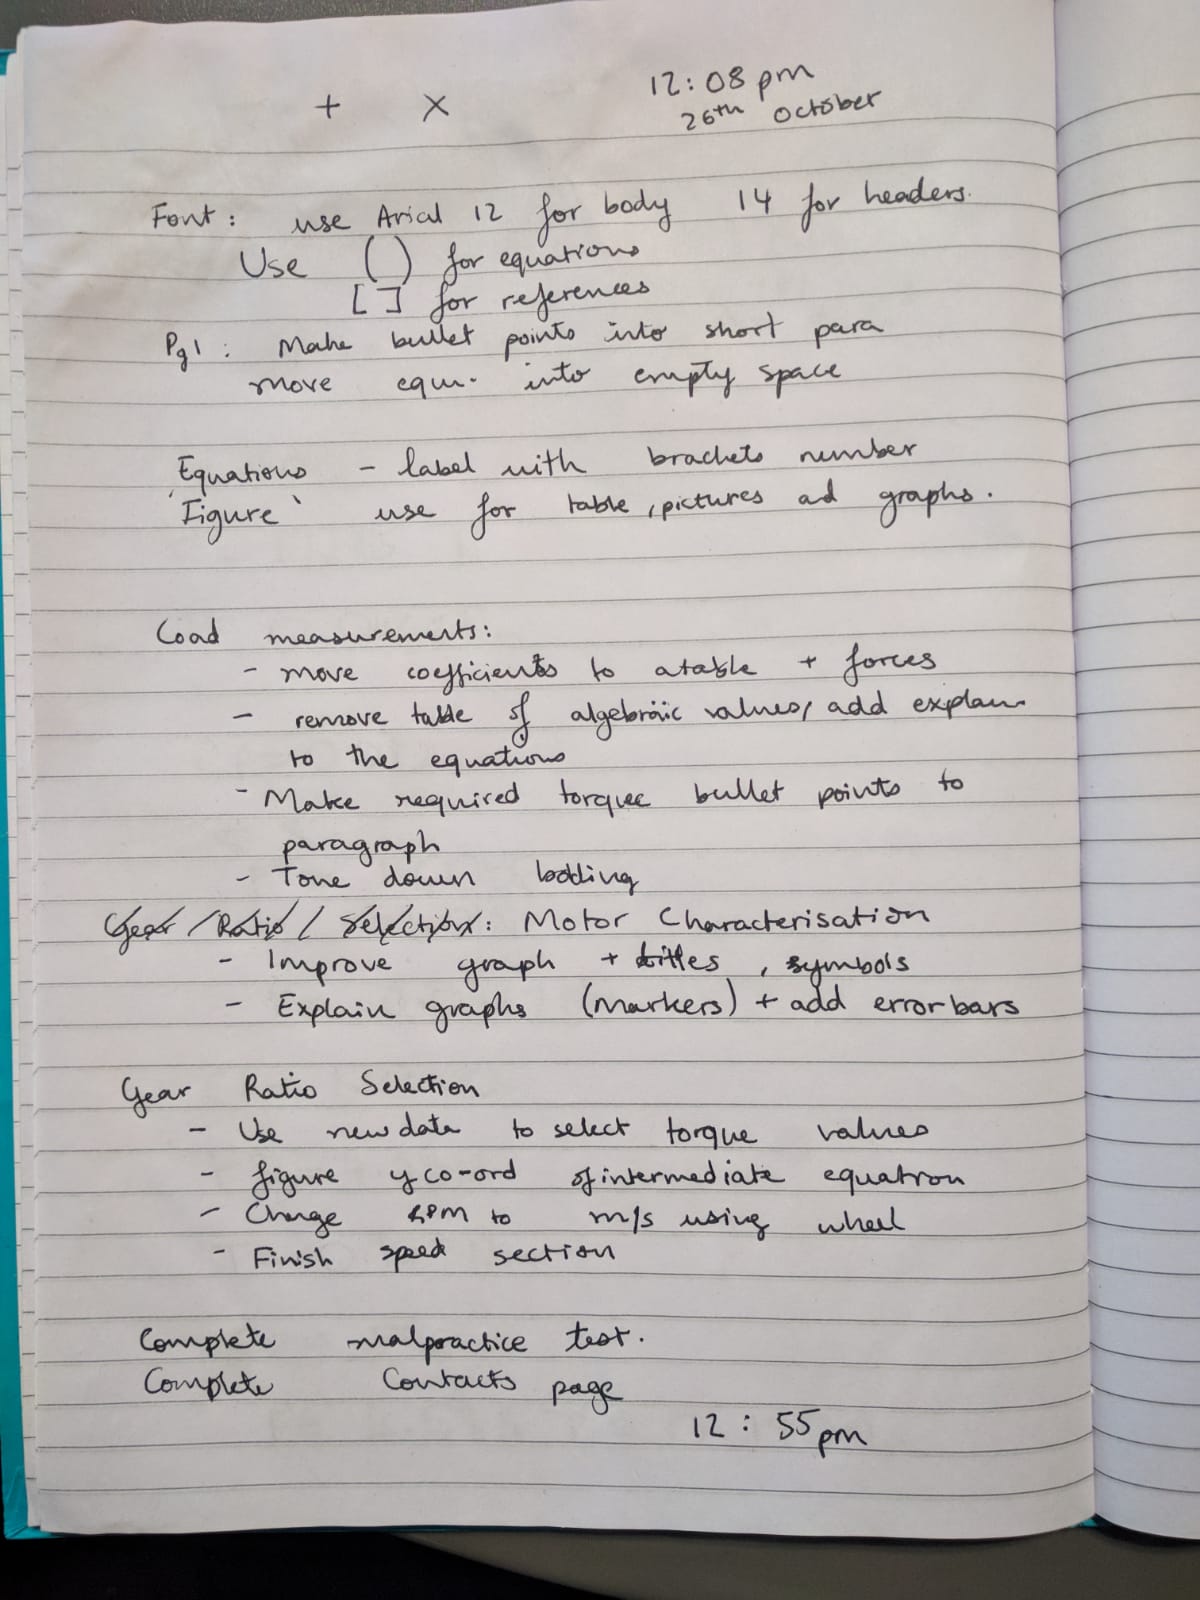 + × 12:08 pm
26th October
Font: use Arial 12 for body 14 for headers.
Use ( ) for equations
[ ] for references
Pg1: Make bullet points into short para
move equn. into empty space
Equations - label with brackets number
'Figure' use for table, pictures ad graphs.
Load measurements:
- move coefficients to a table + forces
- remove table of algebraic values, add explan
to the equations
- Make required torque bullet points to
paragraph
- Tone down bolding
Gear / Ratio / Selection: Motor Characterisation
- Improve graph + titles, symbols
- Explain graphs (markers) + add error bars
Gear Ratio Selection
- Use new data to select torque values
- figure y co-ord of intermediate equation
- Change RPM to m/s using wheel
- Finish speed section
Complete malpractice test.
Complete Contacts page
12:55pm